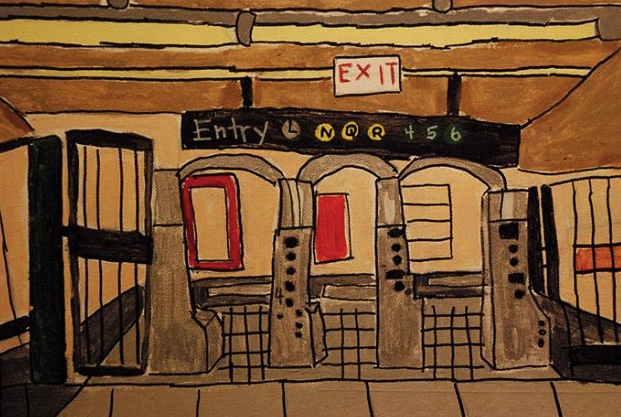 EXIT
Entry L N Q R 4 5 6